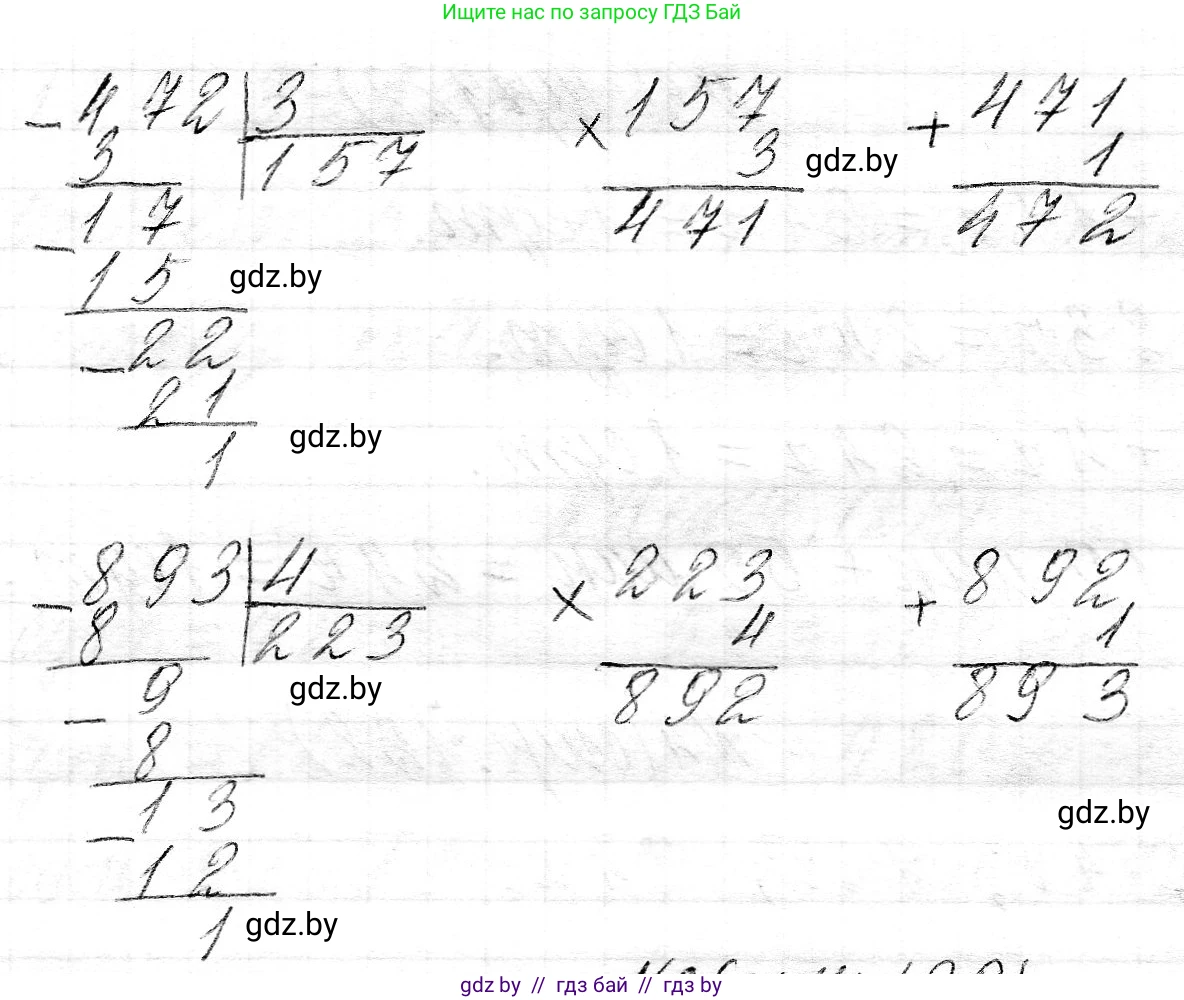 Ищите нас по запросу ГДЗ Бай
- 472 | 3
3 | 157
- 17
15
- 22
21
1
× 157
3
471
+ 471
1
472
gdz.by
gdz.by
gdz.by
- 893 | 4
8 | 223
- 9
8
- 13
12
1
× 223
4
892
+ 892
1
893
gdz.by
gdz.by
gdz.by
gdz.by // гдз бай // гдз by